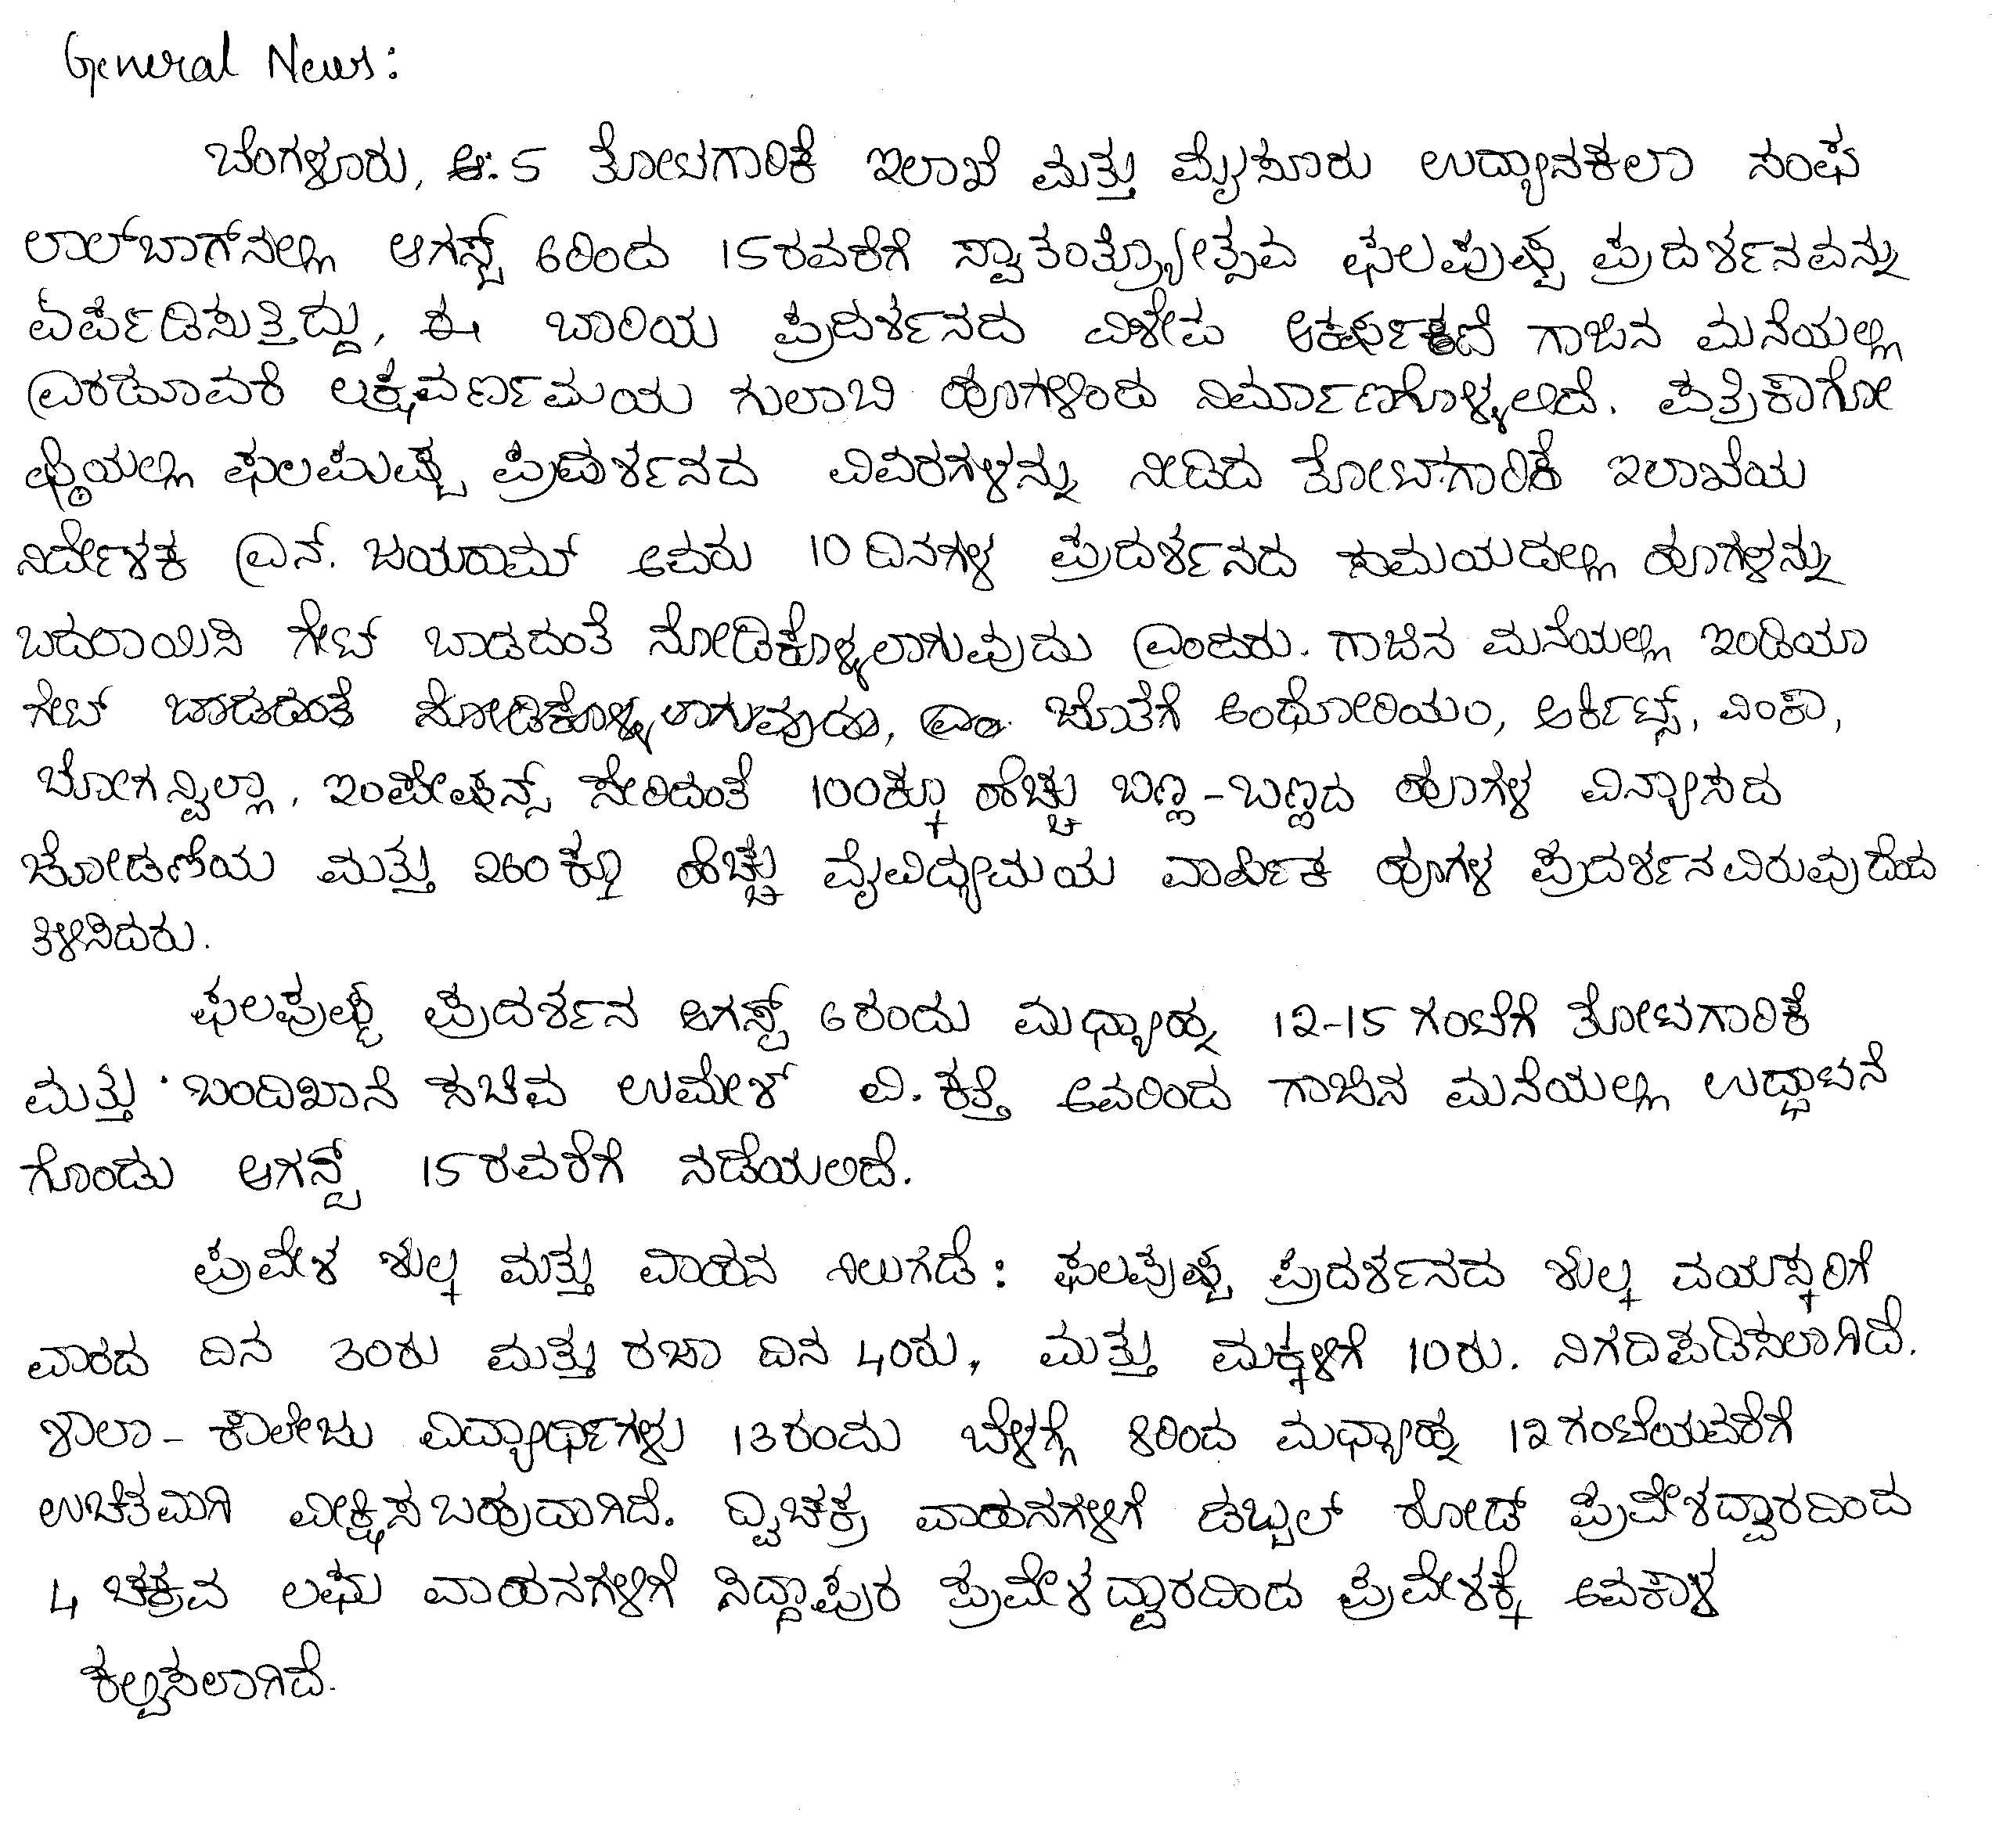 General News:
ಬೆಂಗಳೂರು, ಆ.5 ತೋಟಗಾರಿಕೆ ಇಲಾಖೆ ಮತ್ತು ಮೈಸೂರು ಉದ್ಯಾನಕಲಾ ಸಂಘ
ಲಾಲ್‌ಬಾಗ್‌ನಲ್ಲಿ ಆಗಸ್ಟ್ 6ರಿಂದ 15ರವರೆಗೆ ಸ್ವಾತಂತ್ರ್ಯೋತ್ಸವ ಫಲಪುಷ್ಪ ಪ್ರದರ್ಶನವನ್ನು
ಏರ್ಪಡಿಸುತ್ತಿದ್ದು, ಈ ಬಾರಿಯ ಪ್ರದರ್ಶನದ ವಿಶೇಷ ಗಾಜಿನ ಮನೆಯಲ್ಲಿ
ಎರಡೂವರೆ ಲಕ್ಷವರ್ಣಮಯ ಗುಲಾಬಿ ಹೂಗಳಿಂದ ನಿರ್ಮಾಣಗೊಳ್ಳಲಿದೆ. ಪತ್ರಿಕಾಗೋ
ಷ್ಠಿಯಲ್ಲಿ ಫಲಪುಷ್ಪ ಪ್ರದರ್ಶನದ ವಿವರಗಳನ್ನು ನೀಡಿದ ತೋಟಗಾರಿಕೆ ಇಲಾಖೆಯ
ನಿರ್ದೇಶಕ ಎನ್. ಜಯರಾಮ್ ಅವರು 10 ದಿನಗಳ ಪ್ರದರ್ಶನದ ಸಮಯದಲ್ಲಿ ಹೂಗಳನ್ನು
ಬದಲಾಯಿಸಿ ಗೇಟ್ ಬಾಡದಂತೆ ನೋಡಿಕೊಳ್ಳಲಾಗುವುದು ಎಂದರು. ಗಾಜಿನ ಮನೆಯಲ್ಲಿ ಇಂಡಿಯಾ
ಗೇಟ್ ಬಾಡದಂತೆ ನೋಡಿಕೊಳ್ಳಲಾಗುವುದು, ಎಂ. ಜೊತೆಗೆ ಅಂಥೋರಿಯಂ, ಆರ್ಕಿಟ್ಸ್, ವಿಂಕಾ,
ಬೋಗನ್ವಿಲ್ಲಾ, ಇಂಪೇಷನ್ಸ್ ಸೇರಿದಂತೆ 100ಕ್ಕೂ ಹೆಚ್ಚು ಬಣ್ಣ-ಬಣ್ಣದ ಹೂಗಳ ವಿನ್ಯಾಸದ
ಜೋಡಣೆಯ ಮತ್ತು 260ಕ್ಕೂ ಹೆಚ್ಚು ವೈವಿಧ್ಯಮಯ ವಾರ್ಷಿಕ ಹೂಗಳ ಪ್ರದರ್ಶನವಿರುವುದೆಂದ
ತಿಳಿಸಿದರು.
ಫಲಪುಷ್ಪ ಪ್ರದರ್ಶನ ಆಗಸ್ಟ್ 6ರಂದು ಮಧ್ಯಾಹ್ನ 12-15 ಗಂಟೆಗೆ ತೋಟಗಾರಿಕೆ
ಮತ್ತು ಬಂದಿಖಾನೆ ಸಚಿವ ಉಮೇಶ್ ವಿ. ಕತ್ತಿ ಅವರಿಂದ ಗಾಜಿನ ಮನೆಯಲ್ಲಿ ಉದ್ಘಾಟನೆ
ಗೊಂಡು ಆಗಸ್ಟ್ 15ರವರೆಗೆ ನಡೆಯಲಿದೆ.
ಪ್ರವೇಶ ಶುಲ್ಕ ಮತ್ತು ವಾಹನ ನಿಲುಗಡೆ: ಫಲಪುಷ್ಪ ಪ್ರದರ್ಶನದ ಶುಲ್ಕ ವಯಸ್ಕರಿಗೆ
ವಾರದ ದಿನ 30ರು ಮತ್ತು ರಜಾ ದಿನ 40ರು, ಮತ್ತು ಮಕ್ಕಳಿಗೆ 10ರು. ನಿಗದಿಪಡಿಸಲಾಗಿದೆ.
ಶಾಲಾ-ಕಾಲೇಜು ವಿದ್ಯಾರ್ಥಿಗಳು 13ರಂದು ಬೆಳಗ್ಗೆ 8ರಿಂದ ಮಧ್ಯಾಹ್ನ 12 ಗಂಟೆಯವರೆಗೆ
ಉಚಿತಮಗಿ ವೀಕ್ಷಿಸಬಹುದಾಗಿದೆ. ದ್ವಿಚಕ್ರ ವಾಹನಗಳಿಗೆ ಡಬ್ಬಲ್ ರೋಡ್ ಪ್ರವೇಶದ್ವಾರದಿಂದ
4 ಚಕ್ರವ ಲಘು ವಾಹನಗಳಿಗೆ ಸಿದ್ದಾಪುರ ಪ್ರವೇಶದ್ವಾರದಿಂದ ಪ್ರವೇಶಕ್ಕೆ ಅವಕಾಶ
ಕಲ್ಪಸಲಾಗಿದೆ.